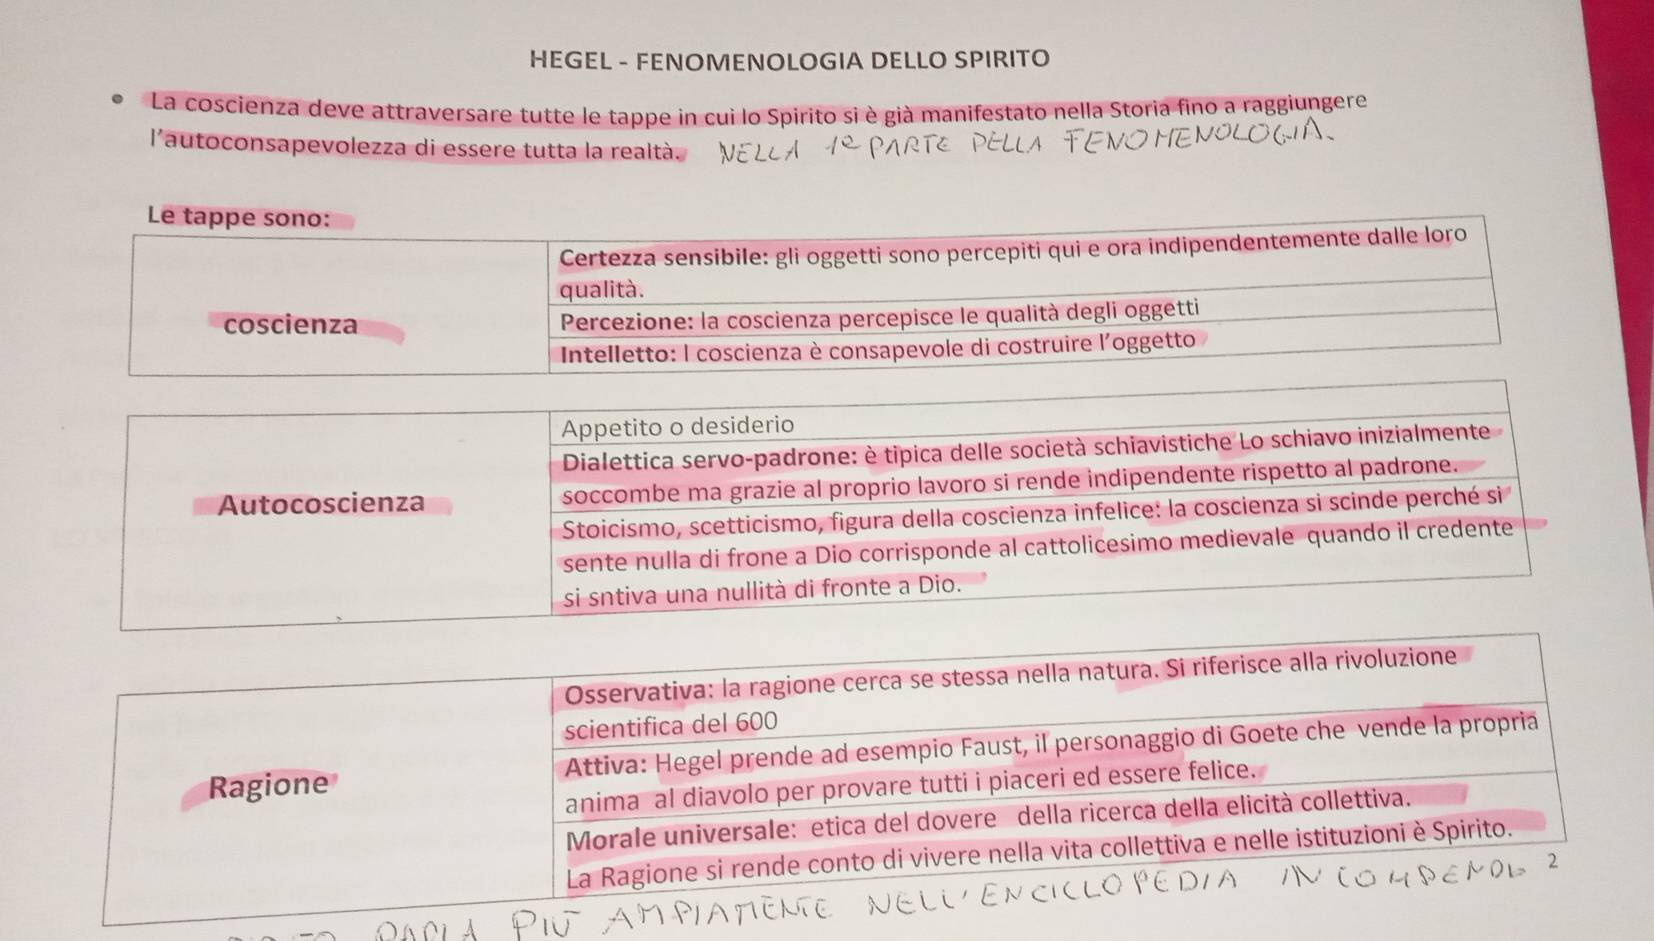 HEGEL - FENOMENOLOGIA DELLO SPIRITO
• La coscienza deve attraversare tutte le tappe in cui lo Spirito si è già manifestato nella Storia fino a raggiungere
l'autoconsapevolezza di essere tutta la realtà. NELLA 1ª PARTE DELLA FENOMENOLOGIA.
Le tappe sono:
Certezza sensibile: gli oggetti sono percepiti qui e ora indipendentemente dalle loro
qualità.
coscienza
Percezione: la coscienza percepisce le qualità degli oggetti
Intelletto: l coscienza è consapevole di costruire l'oggetto
Appetito o desiderio
Dialettica servo-padrone: è tipica delle società schiavistiche Lo schiavo inizialmente
soccombe ma grazie al proprio lavoro si rende indipendente rispetto al padrone.
Autocoscienza
Stoicismo, scetticismo, figura della coscienza infelice: la coscienza si scinde perché si
sente nulla di frone a Dio corrisponde al cattolicesimo medievale quando il credente
si sntiva una nullità di fronte a Dio.
Osservativa: la ragione cerca se stessa nella natura. Si riferisce alla rivoluzione
scientifica del 600
Attiva: Hegel prende ad esempio Faust, il personaggio di Goete che vende la propria
anima al diavolo per provare tutti i piaceri ed essere felice.
Ragione
Morale universale: etica del dovere della ricerca della elicità collettiva.
La Ragione si rende conto di vivere nella vita collettiva e nelle istituzioni è Spirito.
PARLA PIÙ AMPIAMENTE NELL'ENCICLOPEDIA IN COMPENDIO 2